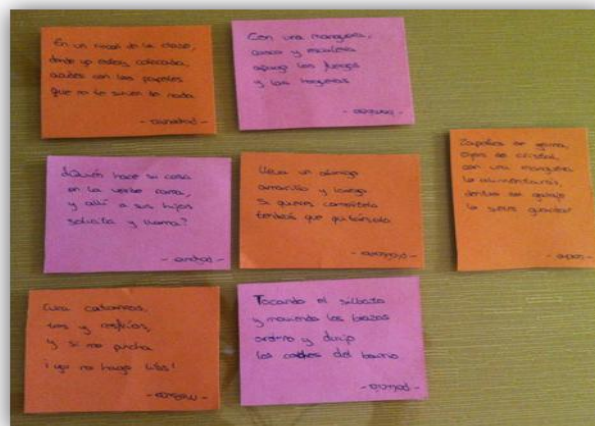 En un rincón de la clase,
donde yo estoy colocada,
acudes con los papeles
que no te sirven de nada
Con una manguera,
casco y escalera
apago los fuegos
y las hogueras
¿Quién hace su casa
en la verde rama,
y allí a sus hijos
solícita y llama?
Lleva un abrigo
amarillo y luego
si quieres comértelo
tendrás que quitárselo
Zapatos de goma,
ojos de cristal,
con una manguera
lo alimentarás,
dentro del garaje
lo sueles guardar
Cura catarros,
tos y
y si no pincha
¡yo no hago
Tocando el silbato
y moviendo los brazos
ordeno y dirijo
los coches del barrio